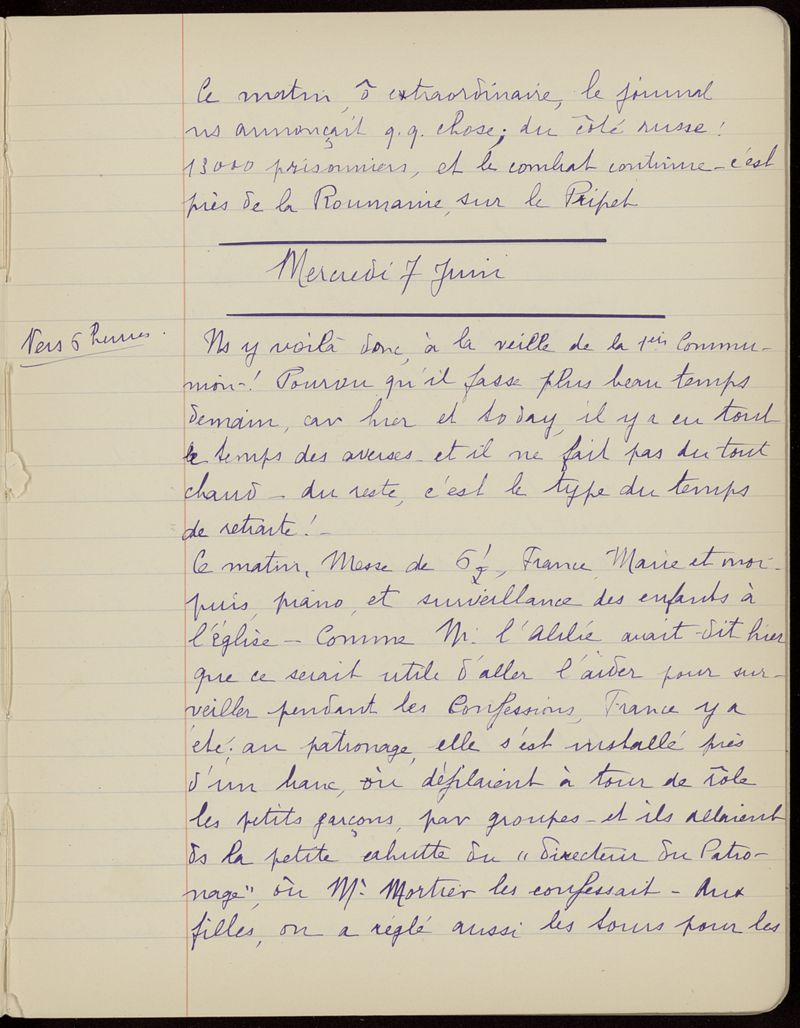 Ce matin, ô extraordinaire, le journal
ns annonçait q.q. chose, du côté russe !
13000 prisonniers, et le combat continue - c'est
près de la Roumanie, sur le Pripet
Mercredi 7 Juin
Vers 6 heures.
Ns y voilà donc, à la veille de la 1ère Commu-
nion-! Pourvu qu'il fasse plus beau temps
demain, car hier et to day, il y a eu tout
le temps des averses - et il ne fait pas du tout
chaud - du reste, c'est le type du temps
de retraite ! -
Ce matin, Messe de 6 1/2, France, Marie et moi -
puis, piano, et surveillance des enfants à
l'église - Comme Mr l'Abbé avait dit hier
que ce serait utile d'aller l'aider pour sur-
veiller pendant les Confessions, France y a
été ; au patronage, elle s'est installé près
d'un banc, où défilaient à tour de rôle
les petits garçons, par groupes - et ils allaient
ds la petite cahutte du "directeur du Patro-
nage", où Mr Mortier les confessait - Aux
filles, on a réglé aussi les tours pour les